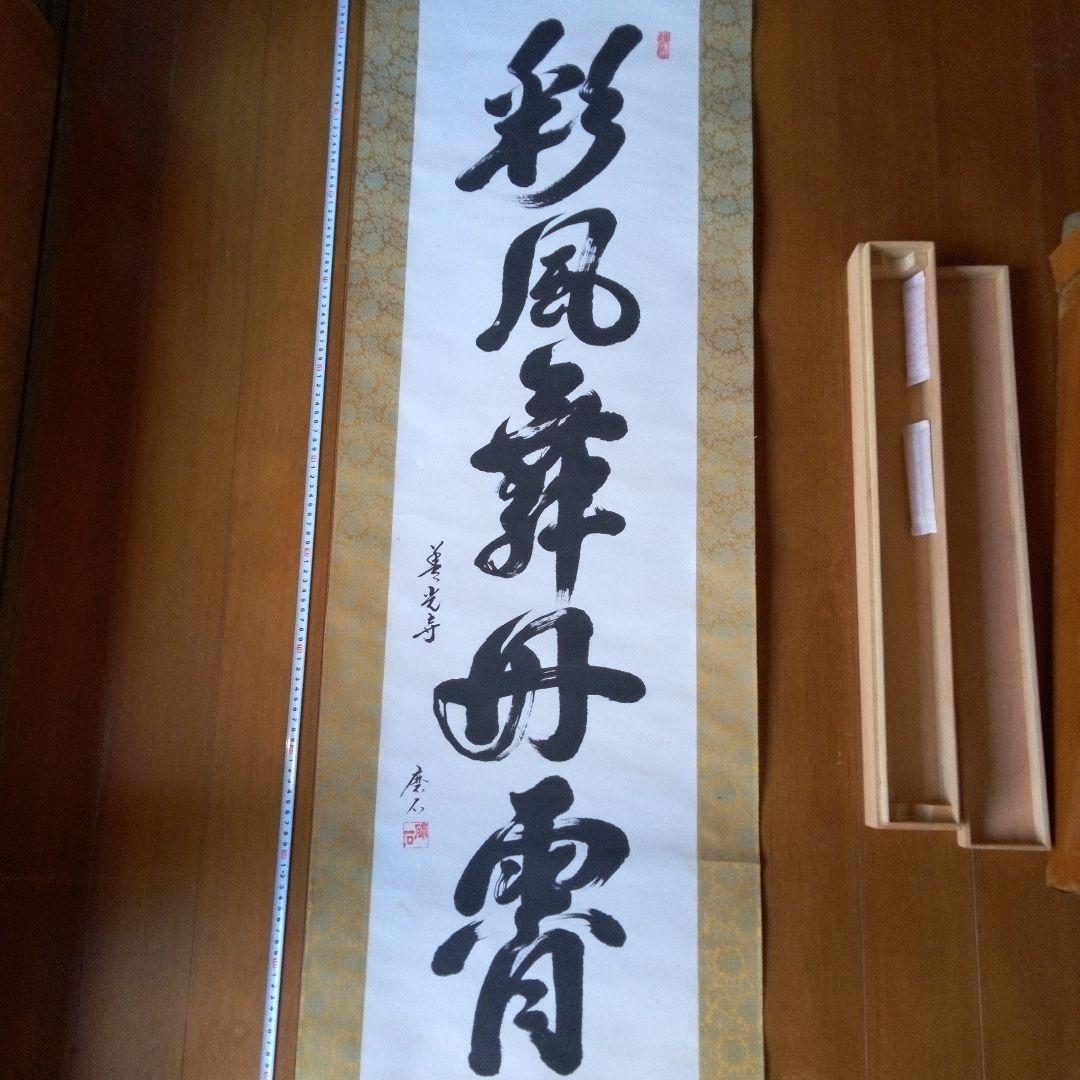 彩鳳舞丹霄
善光寺
磨石